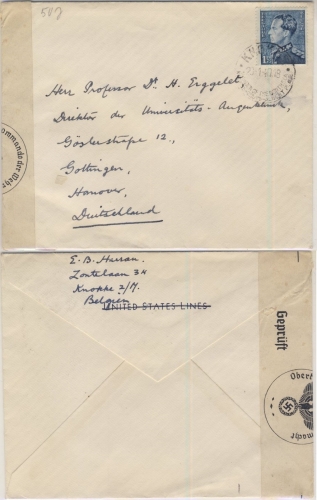 Herr Professor Dr H. Erggelet
Direktor der Universitäts-Augenklinik,
Göslerstraße 12,
Gottingen,
Hanover,
Deutschland
Kommando der Weh
E. B. Harran.
Zoutelaan 34
Knokke 2/M.
Belgien
UNITED STATES LINES
Geprüft
Oberk
macht